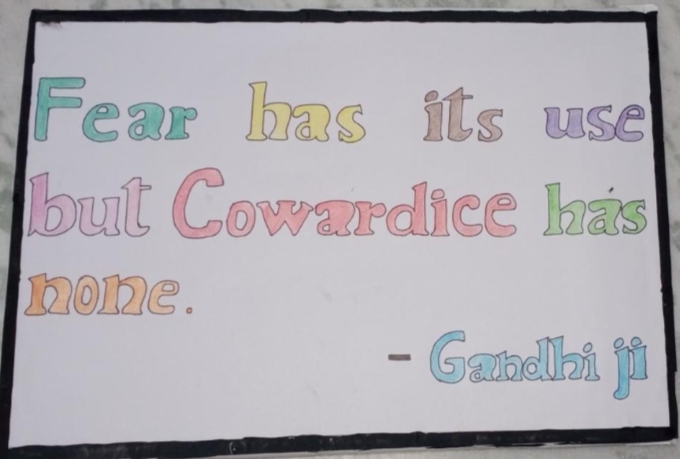 Fear has its use
but Cowardice has
none.
- Gandhi ji